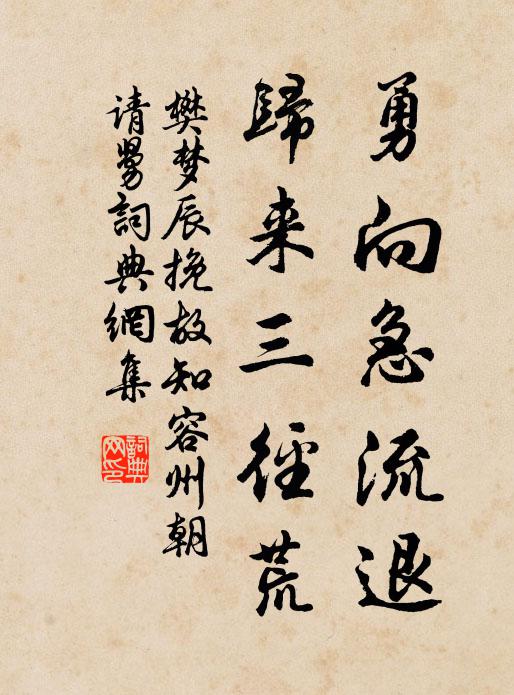 勇向急流退
歸来三徑荒
樊梦辰挽故知容州朝
请曼詞典網集
詞典
网印